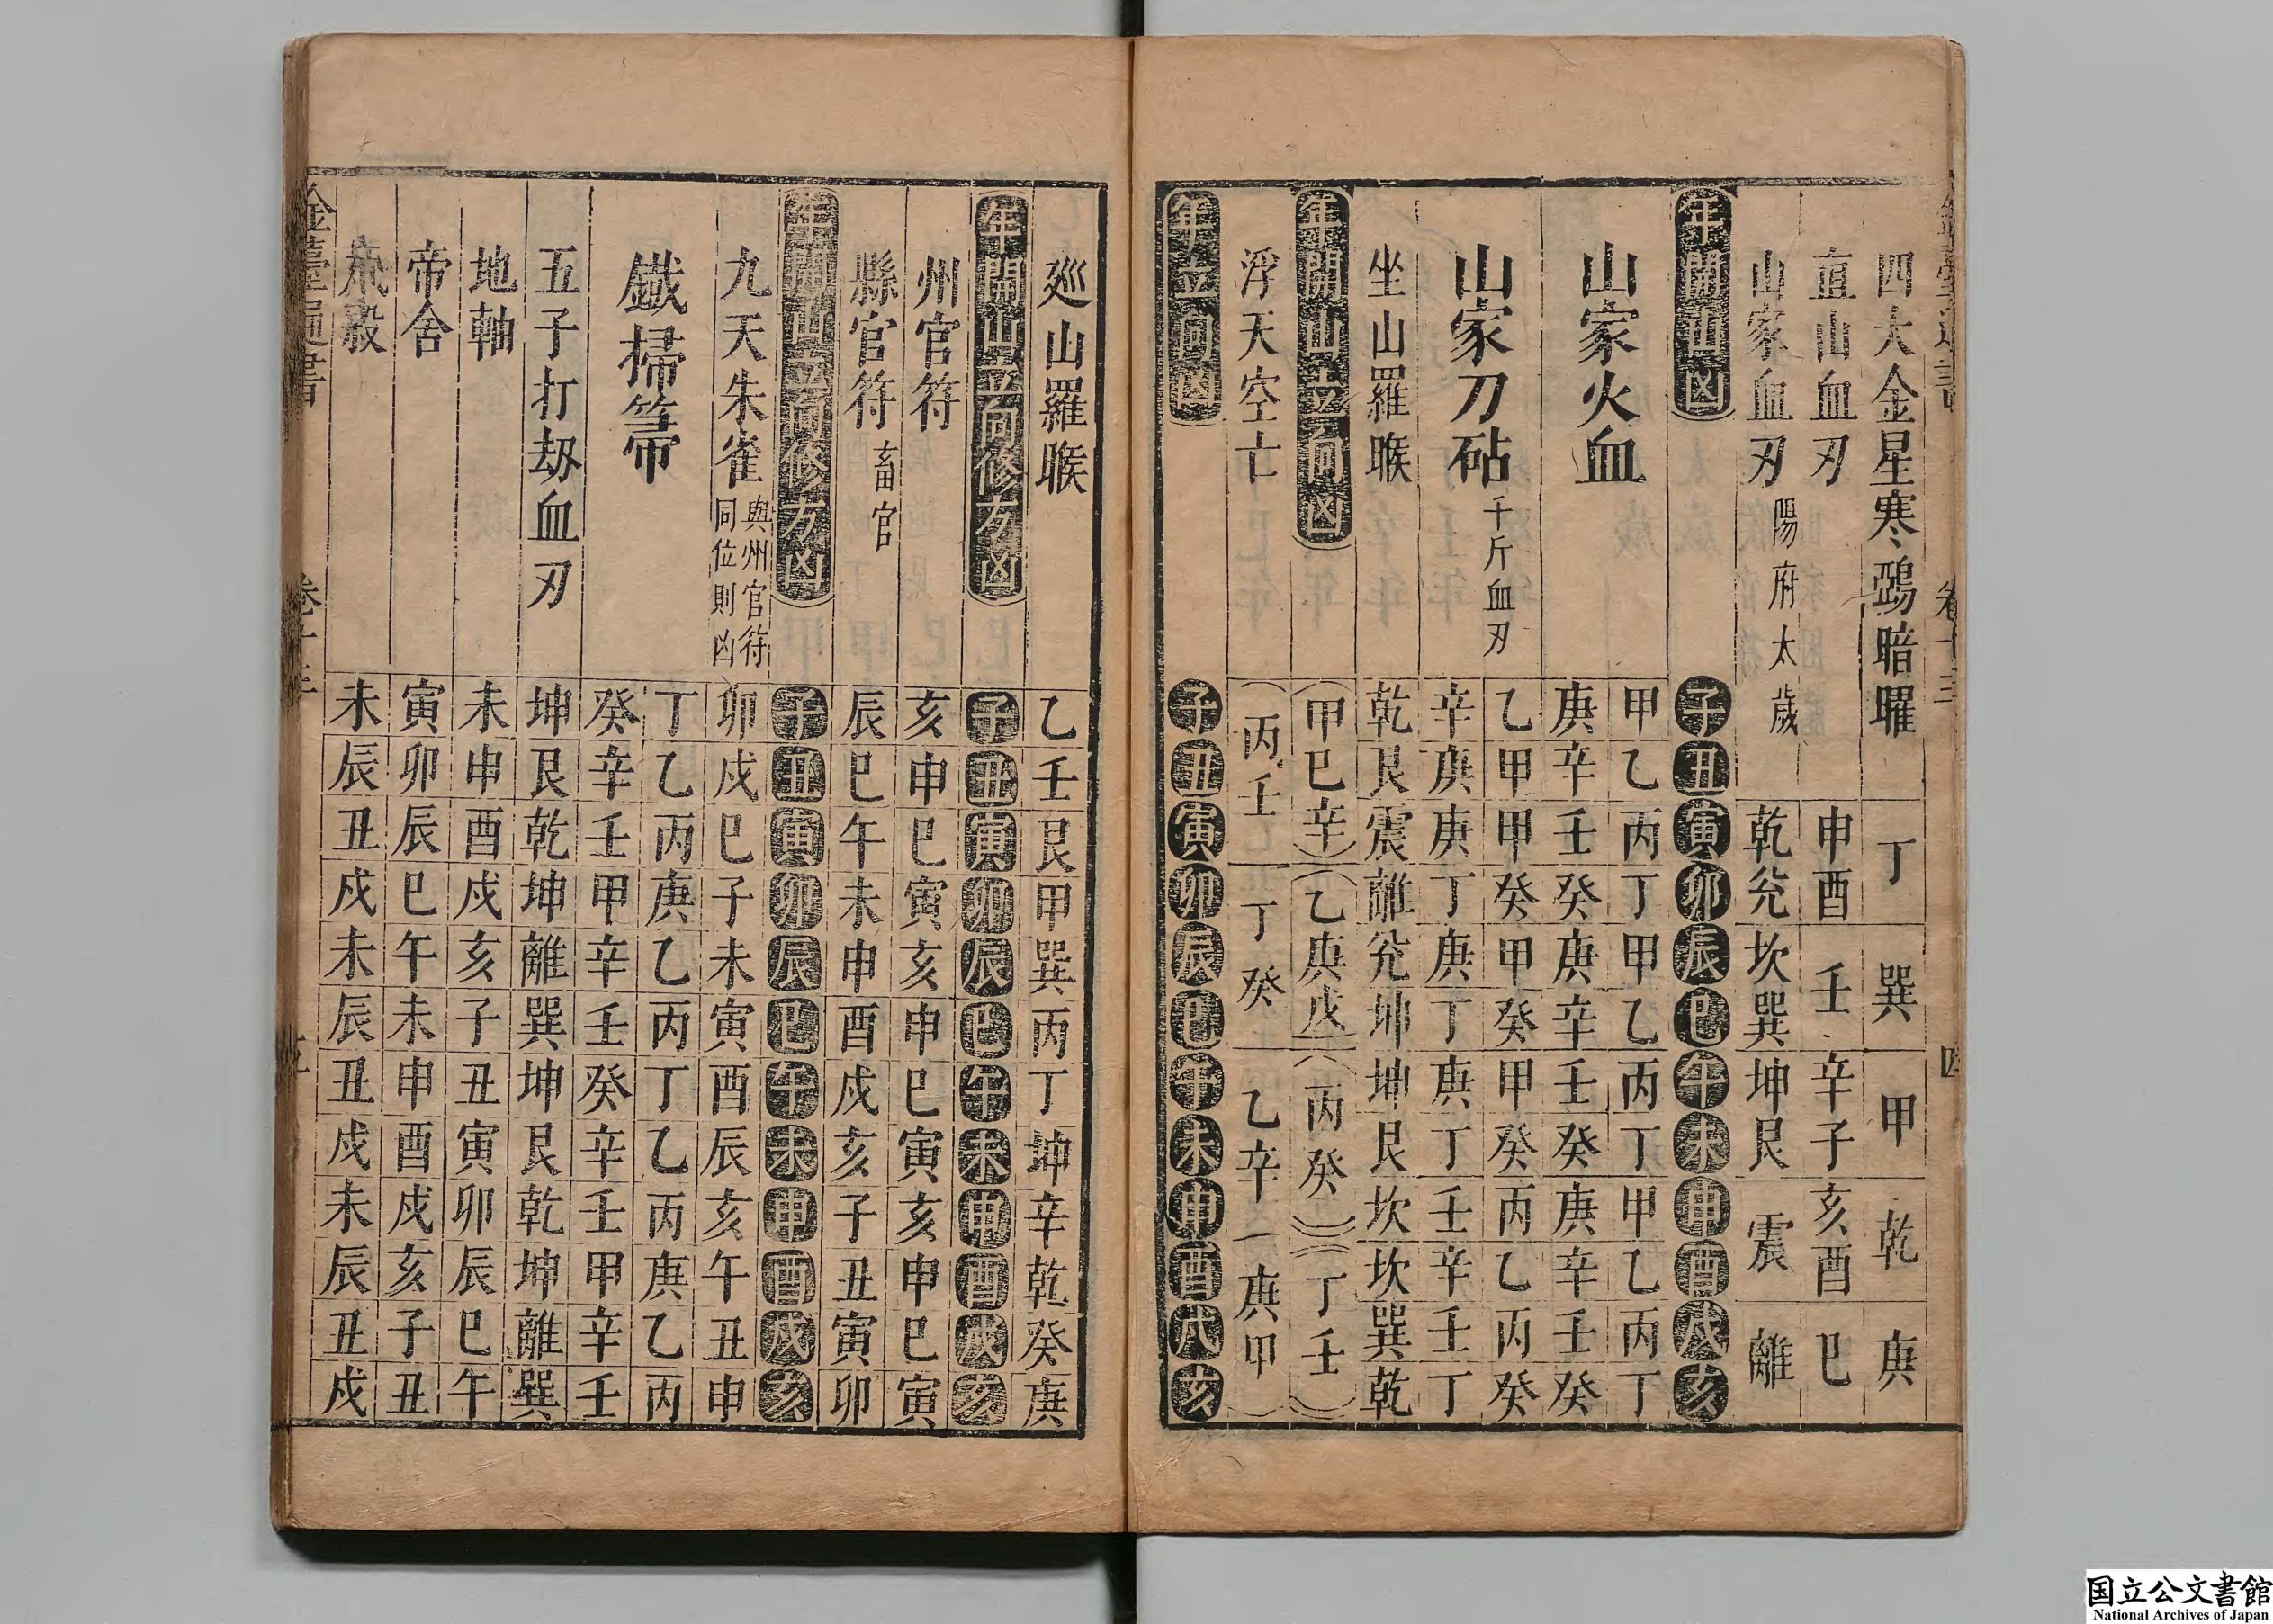 四大金星寒鵶暗曜 丁 巽 甲 乾 庚
直山血刃 申酉 壬 辛子 亥酉 巳
山家血刃 陽府太歲 乾兊 坎巽 坤艮 震 離
年開山凶 子丑寅卯辰巳午未申酉戌亥
山家火血 甲乙丙丁甲乙丙丁甲乙丙丁
庚辛壬癸庚辛壬癸庚辛壬癸
山家刀砧 千斤血刃 乙甲甲癸甲癸甲癸丙乙丙癸
辛庚庚丁庚丁庚丁壬辛壬丁
坐山羅睺 乾艮震離兊坤坤艮坎坎巽乾
年開山立向凶 甲巳辛 乙庚戊 丙癸 丁壬
浮天空亡 丙壬乙 丁癸 乙辛 庚甲
年立向凶 子丑寅卯辰巳午未申酉戌亥
廵山羅睺 乙壬艮甲巽丙丁坤辛乾癸庚
年開山立向修方凶 子丑寅卯辰巳午未申酉戌亥
州官符 亥申巳寅亥申巳寅亥申巳寅
縣官符 畜官 辰巳午未申酉戌亥子丑寅卯
年開山立向修方凶 子丑寅卯辰巳午未申酉戌亥
九天朱雀 與州官符同位則凶 卯戌巳子未寅酉辰亥午丑申
鐵掃箒 丁乙丙庚乙丙丁乙丙庚乙丙
癸辛壬甲辛壬癸辛壬甲辛壬
五子打刼血刃 坤艮乾坤離巽坤艮乾坤離巽
地軸 未申酉戌亥子丑寅卯辰巳午
帝舍 寅卯辰巳午未申酉戌亥子丑
未辰丑戌未辰丑戌未辰丑戌
国立公文書館
National Archives of Japan